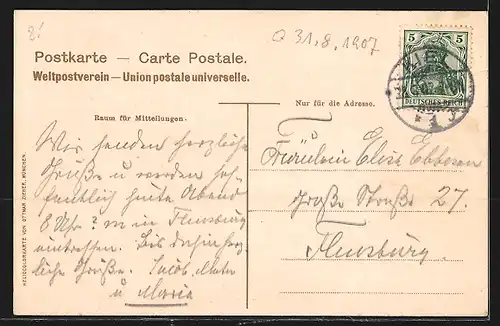 8!
O 31.8.1907
Postkarte — Carte Postale.
Weltpostverein — Union postale universelle.
5 5
DEUTSCHES REICH
KIEL
Nur für die Adresse.
Raum für Mitteilungen.
Wir senden herzliche
Grüße u werden hof-
fentlich heute Abend
8 Uhr ? m in Flensburg
eintreffen. Bis dahin herz-
liche Grüße.
u Maria
Fräulein Elise
Große Straße 27.
Flensburg.
HELIOCOLORKARTE VON OTTMAR ZIEHER, MÜNCHEN.